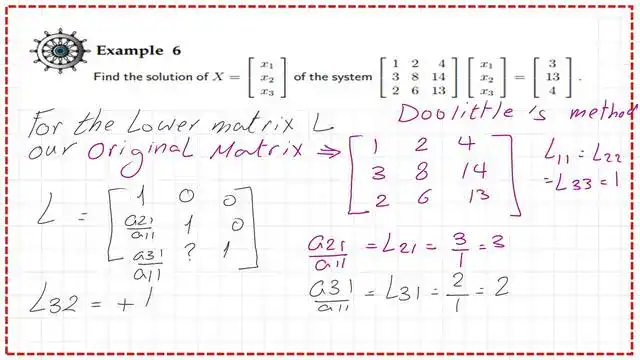 Example 6
Find the solution of X = [x₁ x₂ x₃] of the system [1 2 4; 3 8 14; 2 6 13] [x₁ x₂ x₃] = [3 13 4].
Doolittle's method
For the Lower matrix L
our Original Matrix ⇒ [1 2 4; 3 8 14; 2 6 13]
L11 = L22
= L33 = 1
L = [1 0 0; a21/a11 1 0; a31/a11 ? 1]
a21/a11 = L21 = 3/1 = 3
a31/a11 = L31 = 2/1 = 2
L32 = + 1